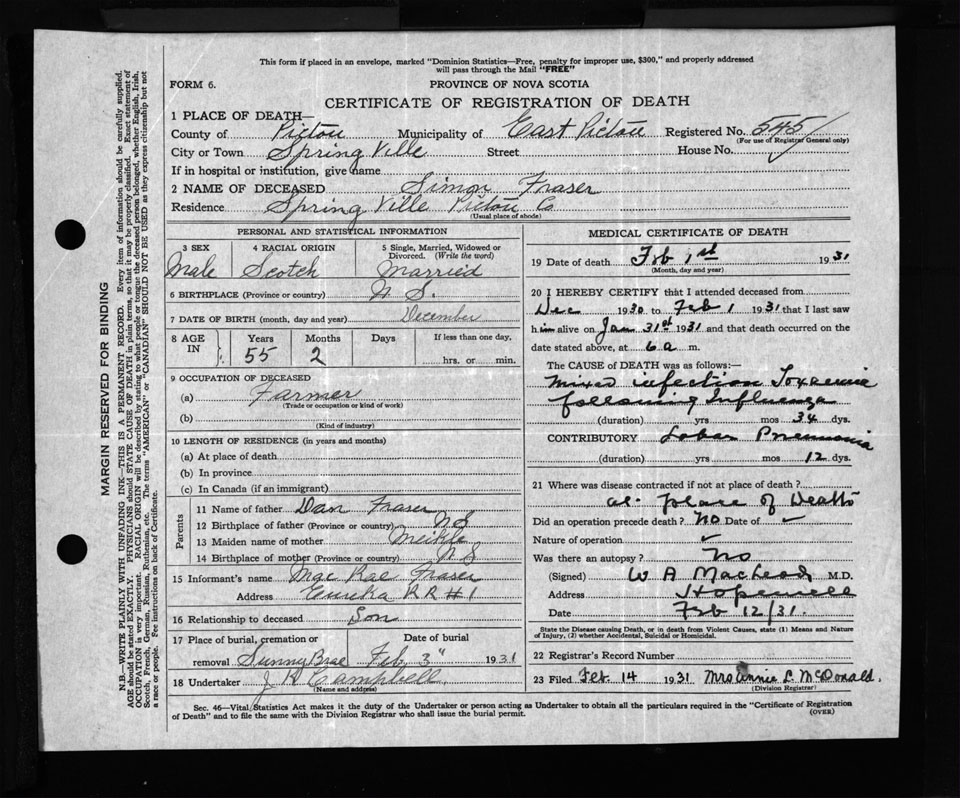 This form if placed in an envelope, marked "Dominion Statistics—Free, penalty for improper use, $300," and properly addressed
will pass through the Mail "FREE"
FORM 6.
PROVINCE OF NOVA SCOTIA
CERTIFICATE OF REGISTRATION OF DEATH
1 PLACE OF DEATH—
County of Pictou Municipality of East Pictou Registered No. 545
(For use of Registrar General only)
City or Town Spring Ville Street House No.
If in hospital or institution, give name
2 NAME OF DECEASED Simon Fraser
Residence Spring Ville Pictou Co
(Usual place of abode)
PERSONAL AND STATISTICAL INFORMATION
3 SEX 4 RACIAL ORIGIN 5 Single, Married, Widowed or
Divorced. (Write the word)
Male Scotch Married
6 BIRTHPLACE (Province or country) N S.
7 DATE OF BIRTH (month, day and year) December
8 AGE IN Years Months Days If less than one day,
55 2 hrs. or min.
9 OCCUPATION OF DECEASED
(a) Farmer
(Trade or occupation or kind of work)
(b)
(Kind of industry)
10 LENGTH OF RESIDENCE (in years and months)
(a) At place of death
(b) In province
(c) In Canada (if an immigrant)
Parents
11 Name of father Dan Fraser
12 Birthplace of father (Province or country) N S
13 Maiden name of mother Meikle
14 Birthplace of mother (Province or country) N S
15 Informant's name MacRae Fraser
Address Eureka RR #1
16 Relationship to deceased Son
17 Place of burial, cremation or Date of burial
removal Sunny Brae Feb 3" 1931
18 Undertaker J R Campbell
(Name and address)
MEDICAL CERTIFICATE OF DEATH
19 Date of death Feb 1st 1931
(Month, day and year)
20 I HEREBY CERTIFY that I attended deceased from
Dec 1930 to Feb 1 1931 that I last saw
him alive on Jan 31st 1931 and that death occurred on the
date stated above, at 6 a m.
The CAUSE of DEATH was as follows:—
Mixed infection Toxaemia
following Influenza
(duration) yrs mos 34 dys.
CONTRIBUTORY Lobar Pneumonia
(duration) yrs mos 12 dys.
21 Where was disease contracted if not at place of death?
at place of Death
Did an operation precede death? No Date of ✓
Nature of operation ✓
Was there an autopsy? No
(Signed) W A MacLeod M.D.
Address Hopewell
Date Feb 12/31.
State the Disease causing Death, or in death from Violent Causes, state (1) Means and Nature
of Injury, (2) whether Accidental, Suicidal or Homicidal.
22 Registrar's Record Number
23 Filed Feb. 14 1931 Mrs Annie L. McDonald.
(Division Registrar)
Sec. 46—Vital Statistics Act makes it the duty of the Undertaker or person acting as Undertaker to obtain all the particulars required in the "Certificate of Registration
of Death" and to file the same with the Division Registrar who shall issue the burial permit.
(OVER)
MARGIN RESERVED FOR BINDING
N.B.—WRITE PLAINLY WITH UNFADING INK—THIS IS A PERMANENT RECORD. Every item of information should be carefully supplied.
AGE should be stated EXACTLY. PHYSICIANS should STATE CAUSE OF DEATH in plain terms, so that it may be properly classified. Exact statement of
OCCUPATION is very important. RACIAL ORIGIN will be described by stating to what people or tongue the deceased person belonged, whether English, Irish,
Scotch, French, German, Russian, Ruthenian, etc. The terms "AMERICAN" or "CANADIAN" SHOULD NOT BE USED as they express citizenship but not
a race or people. Fee instructions on back of Certificate.